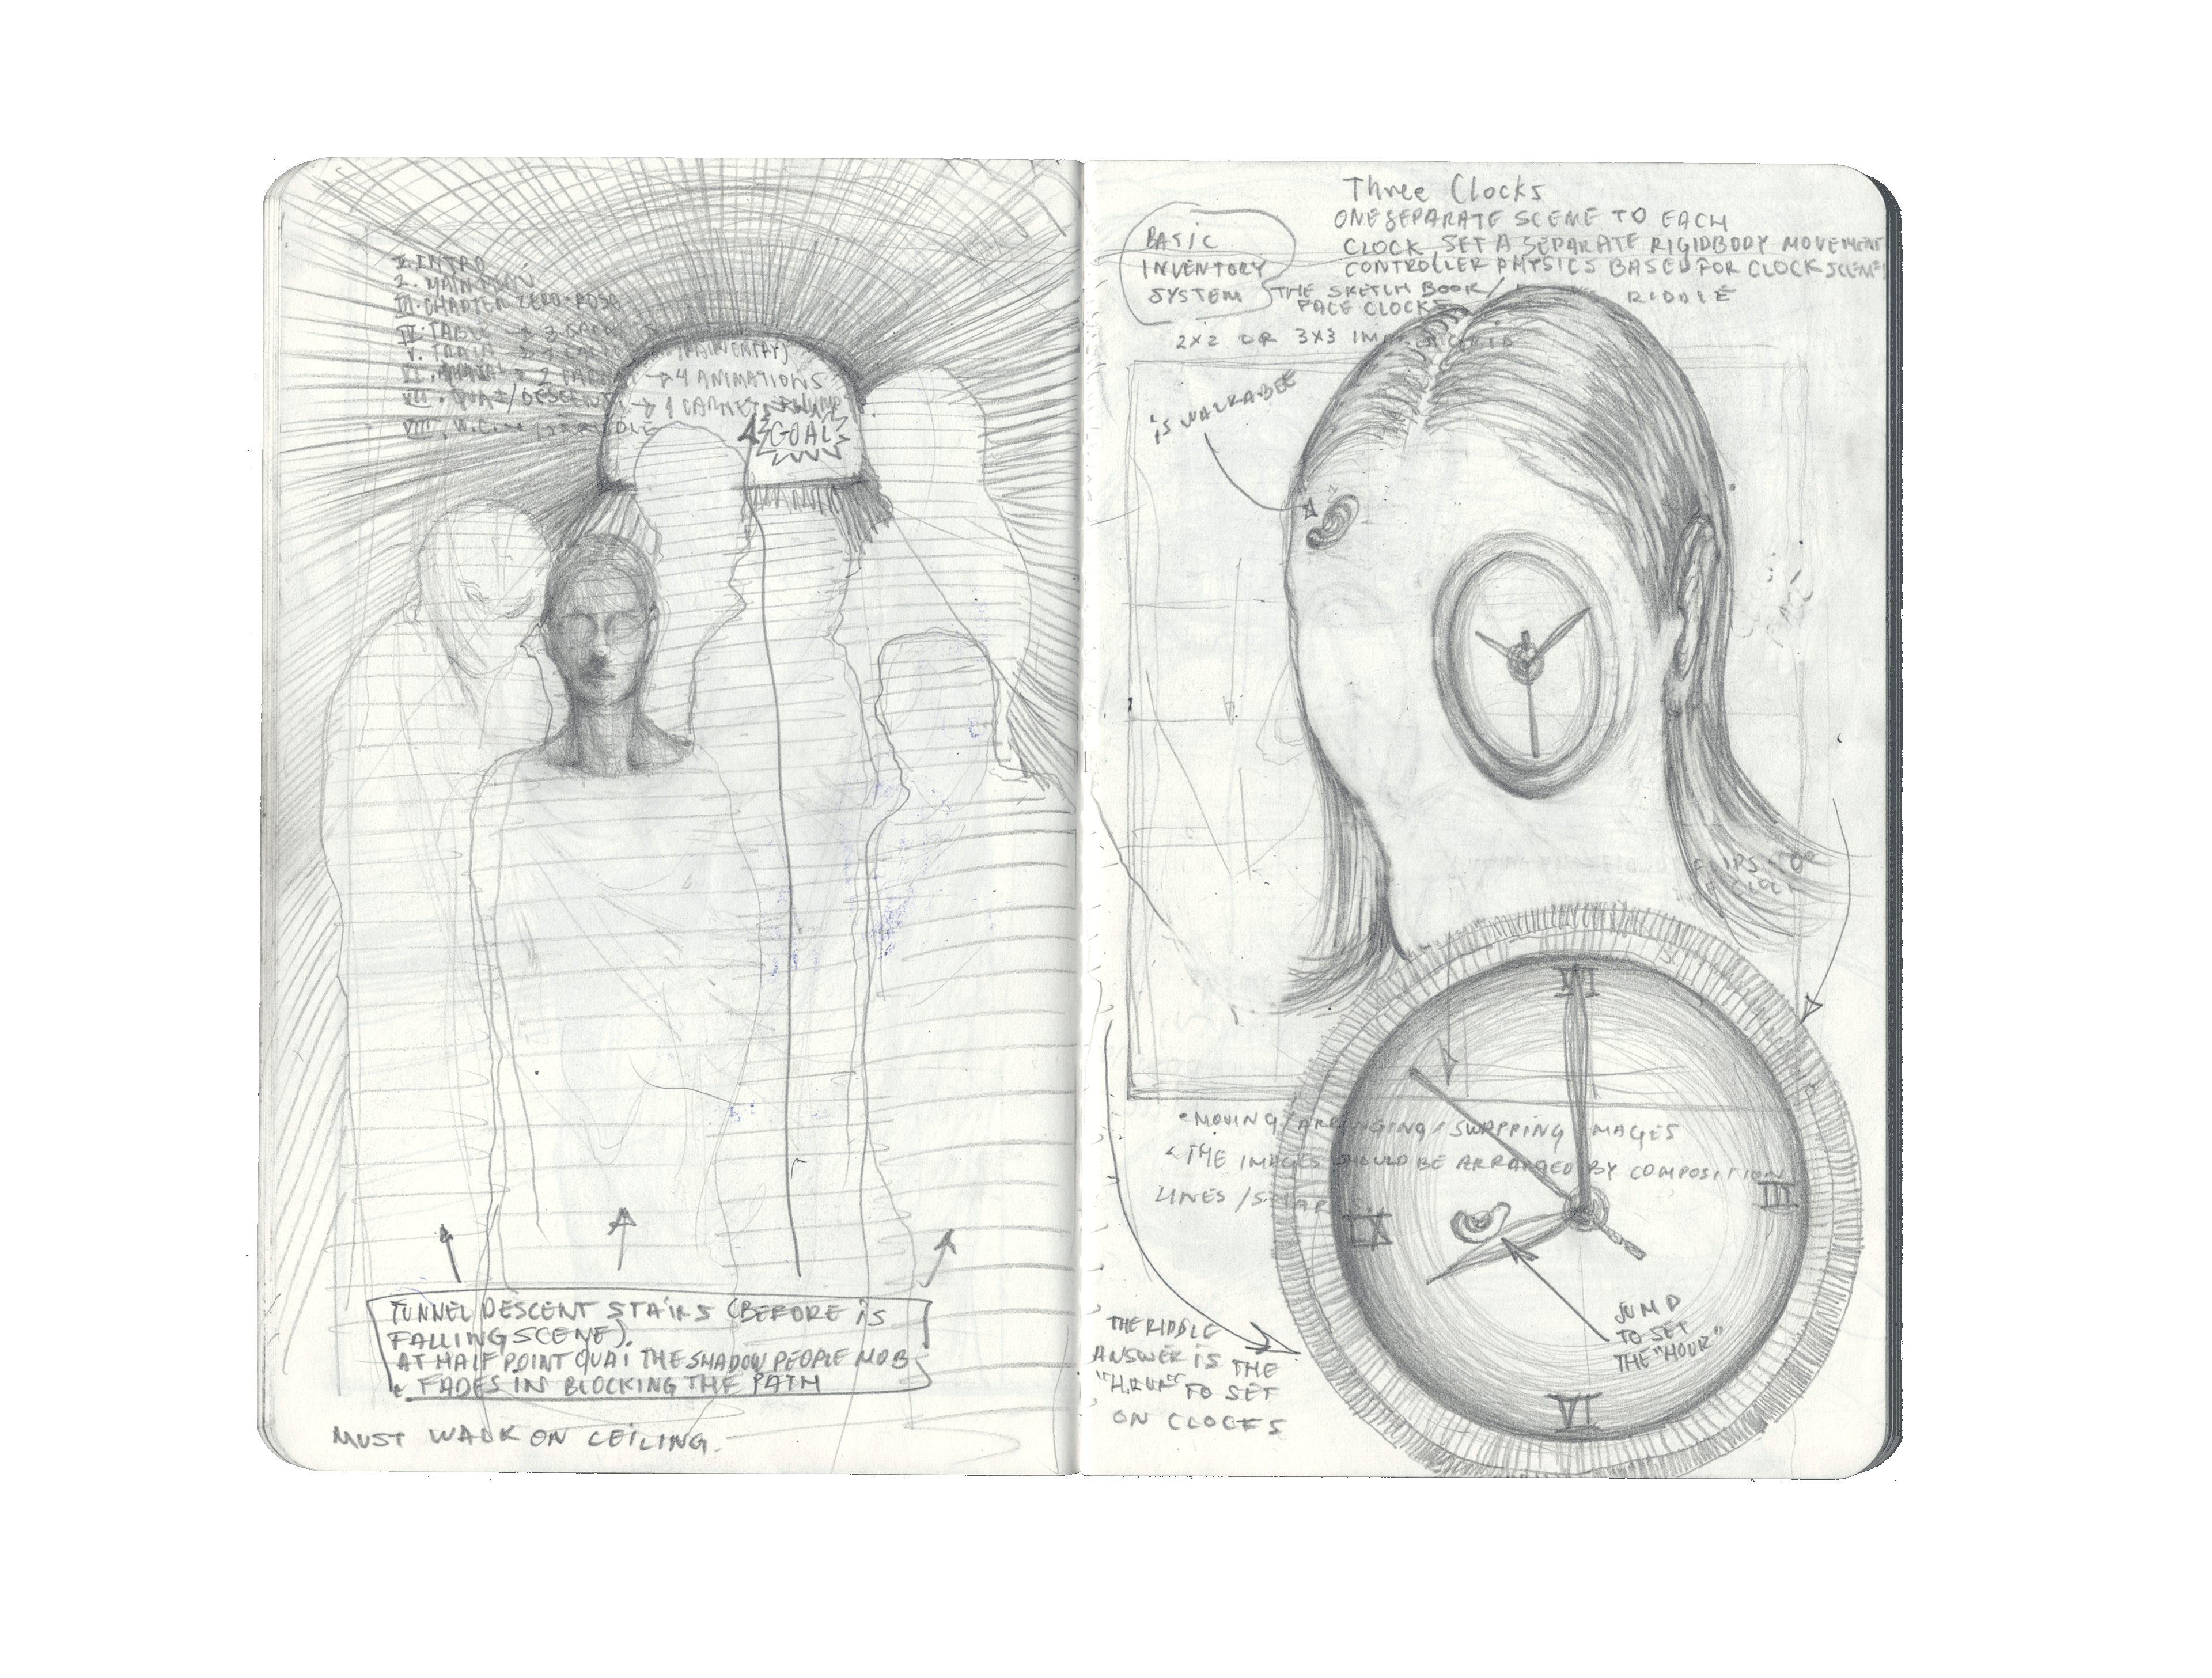 I. INTRO
2. MAIN
III. CHAPTER ZERO-ROSE
IV. TABLE → 3
V. TRAIN
VI. → 2
→ 4 ANIMATIONS
VII. QUAI/DESCENT → 1
VIII. W.C.
GOAL
TUNNEL DESCENT STAIRS (BEFORE IS
FALLING SCENE).
AT HALF POINT QUAI THE SHADOW PEOPLE MOB
FADES IN BLOCKING THE PATH
MUST WALK ON CEILING.
Three Clocks
ONE SEPARATE SCENE TO EACH
CLOCK SET A SEPARATE RIGIDBODY MOVEMENT
CONTROLLER PHYSICS BASED FOR CLOCK SCENE
BASIC
INVENTORY
SYSTEM
THE SKETCH BOOK / RIDDLE
FACE CLOCK
2X2 OR 3X3
IS WALKABEE
FLIPS TO
CLOCK
• MOVING/ARRANGING/SWAPPING IMAGES
• THE IMAGES SHOULD BE ARRANGED BY COMPOSITION
LINES /
XII
III
IX
VI
JUMP
TO SET
THE "HOUR"
THE RIDDLE
ANSWER IS THE
"HOUR" TO SET
ON CLOCKS